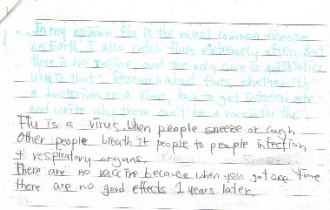 In my opinion flu is the most common disease
on Earth. I also catch flues extremely often. But
there is no vaccine, and the only cure is antibiotics.
Why is that? Research about flues, whether it's
a bacterium or a virus, how to get
and write why there can't be a vaccine for flu.
Flu is a virus. When people sneeze or cough
Other people breath it people to people infection
respiratory organs.
There are no vaccine because when you get one time
there are no good effects 1 years later.